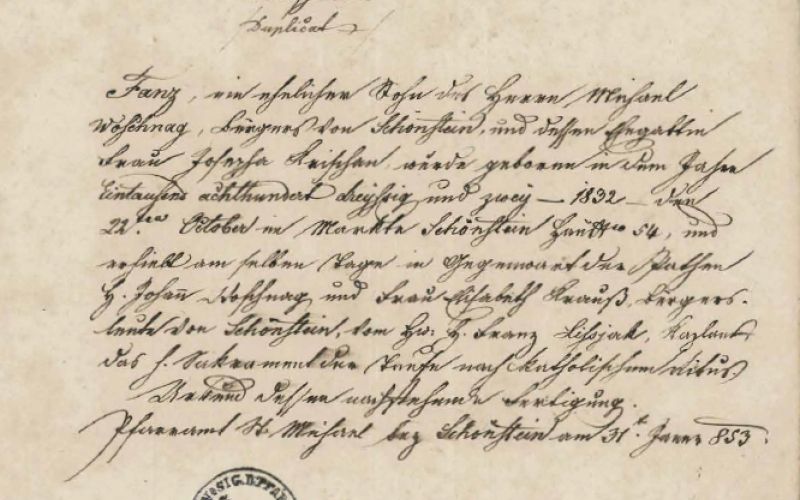 Duplicat
Franz, ein ehelicher Sohn des Herrn Michael
Woschnag, Bürgers von Schönstein, und dessen Ehegattin
Frau Josepha Krischan, wurde geboren in dem Jahre
Eintausend achthundert dreyßig und zwey – 1832 – den
22ten October im Markte Schönstein Haus No 54, und
erhielt am selben Tage in Gegenwart der Pathen
H. Johañ Woschnag und Frau Elisabeth Krauß, Bürgers-
leute von Schönstein, vom Hw. H. Franz Lissjak, Kaplan
das h. Sakrament der Taufe nach katholischem Ritus.
Urkund dessen nachstehende Fertigung.
Pfarramt St. Michael bey Schönstein am 31t Jäner 853.